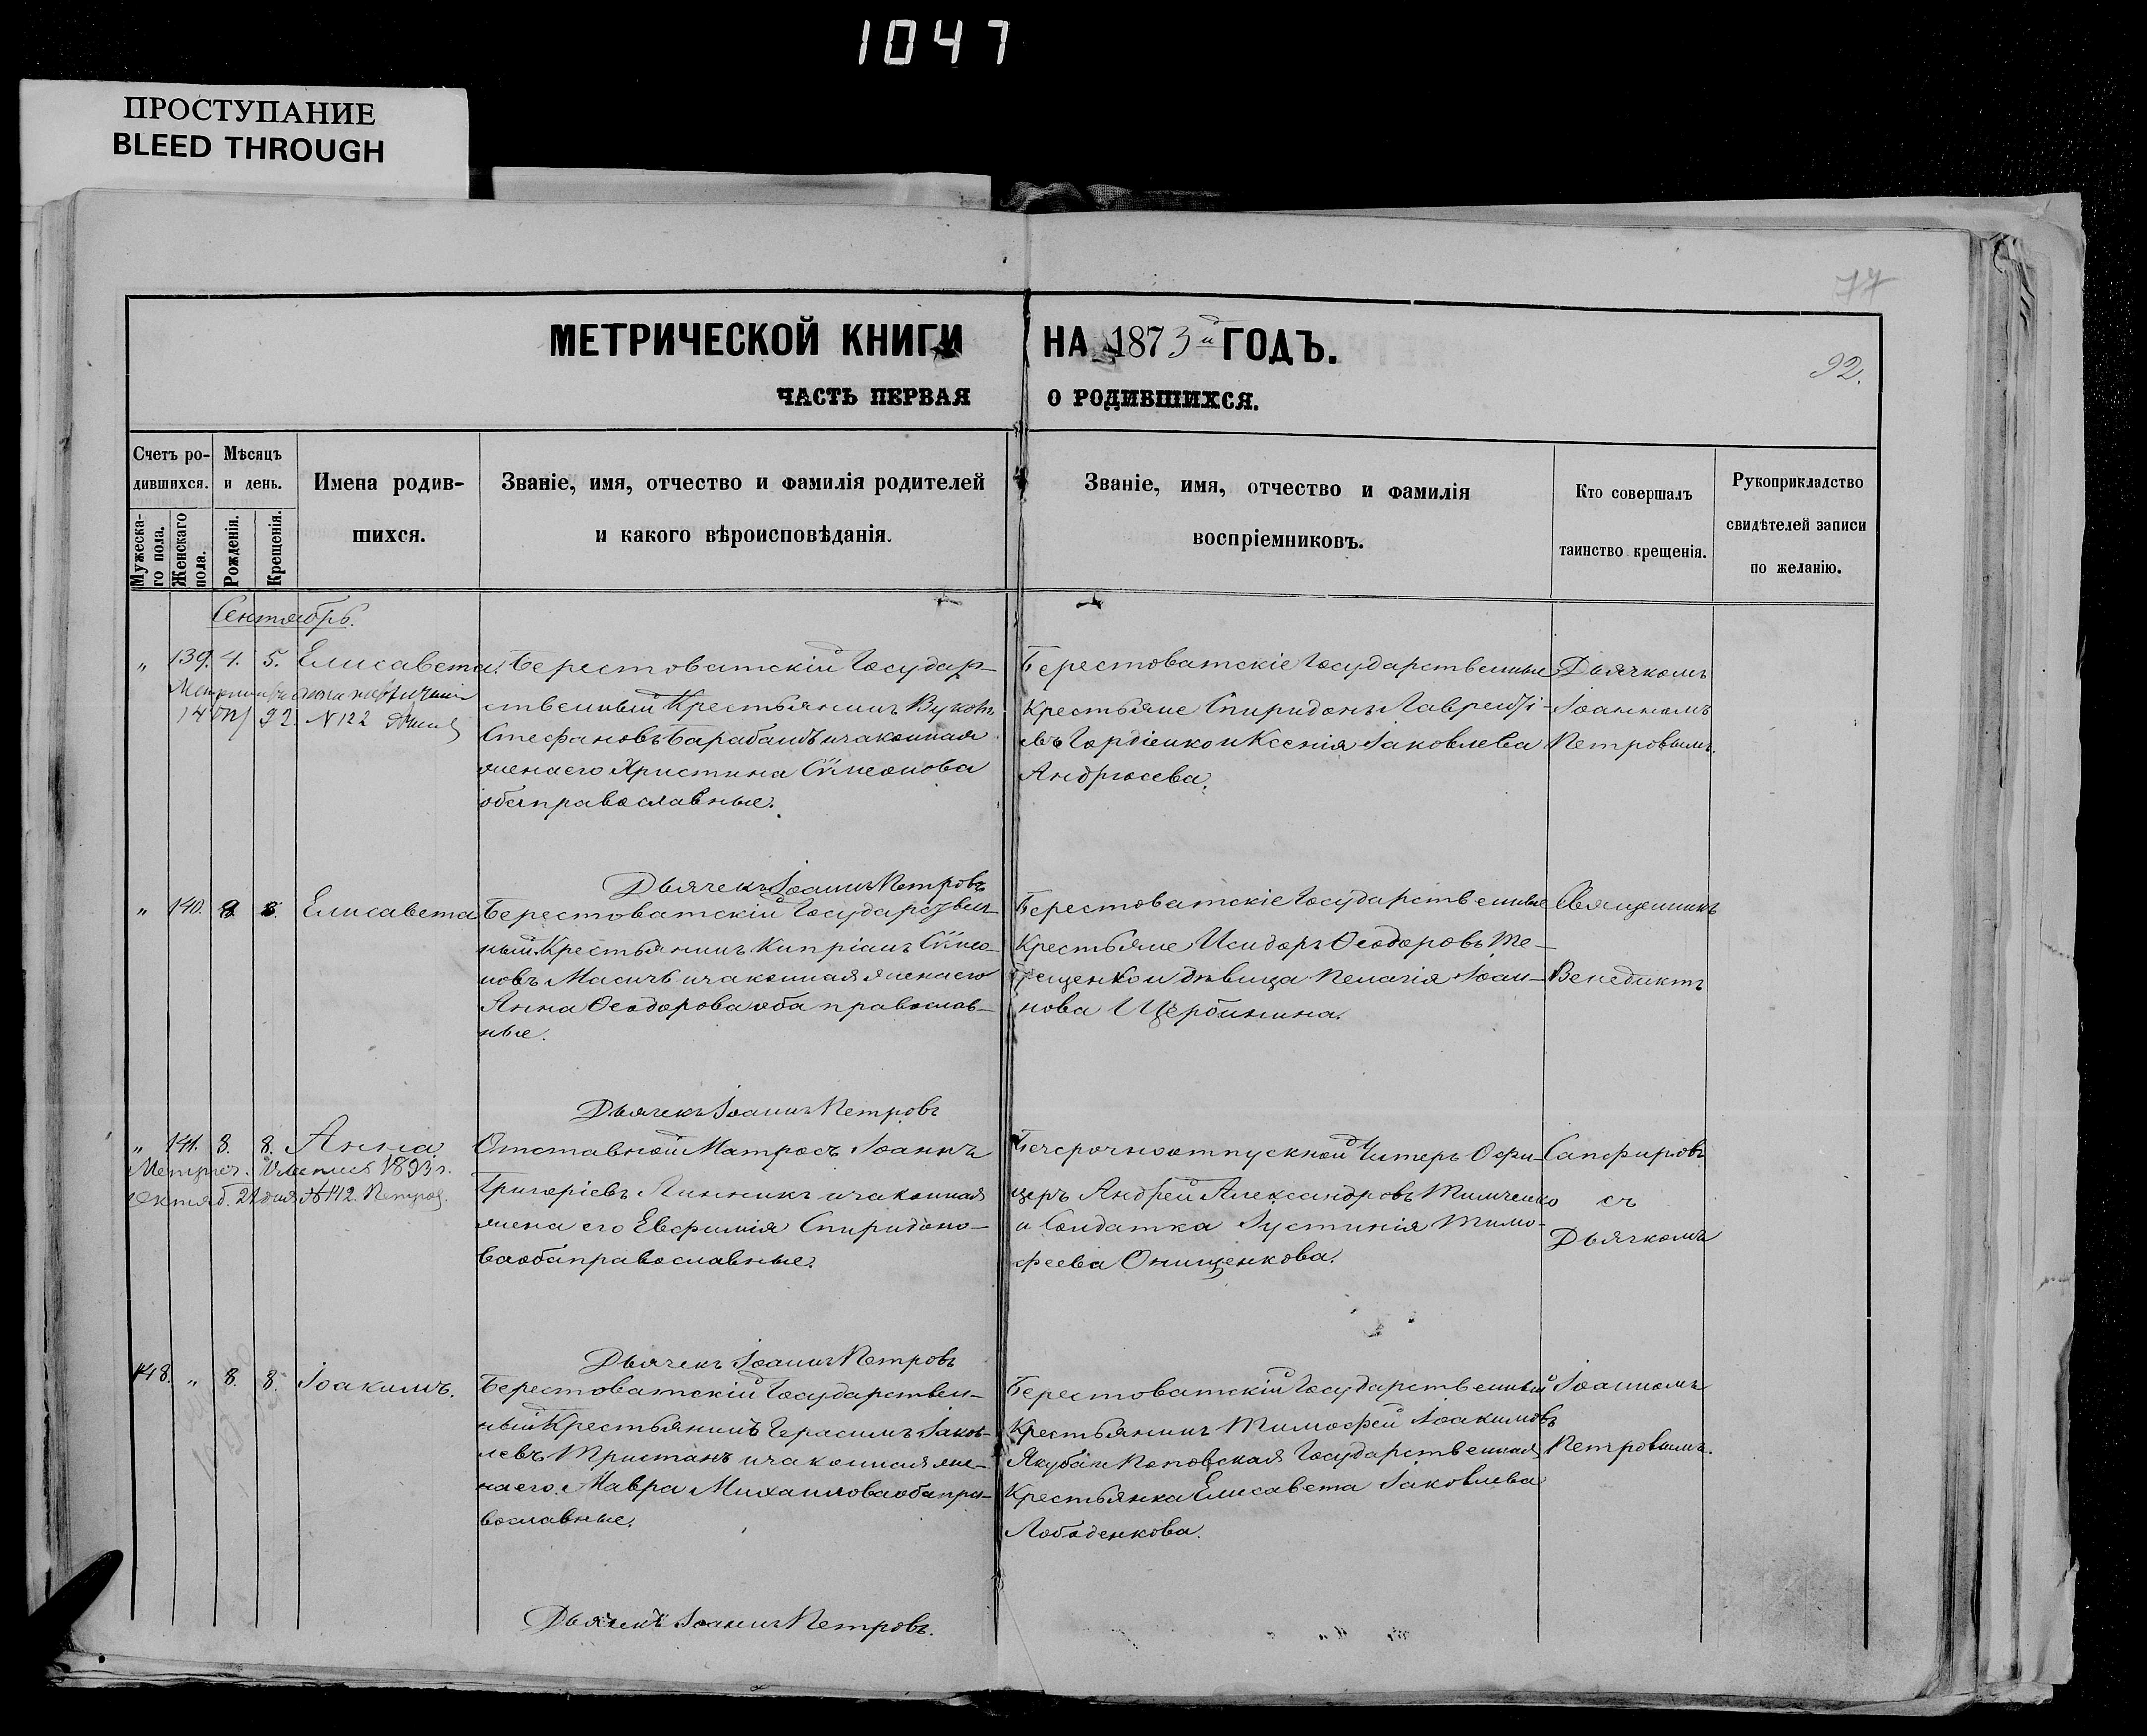 1047
ПРОСТУПАНИЕ
BLEED THROUGH
77
92.
МЕТРИЧЕСКОЙ КНИГИ НА 1873й ГОДЪ.
ЧАСТЬ ПЕРВАЯ О РОДИВШИХСЯ.
Счетъ ро-
дившихся.
Мужеска-
го пола.
Женскаго
пола.
Мѣсяцъ
и день.
Рожденія.
Крещенія.
Имена родив-
шихся.
Званіе, имя, отчество и фамилія родителей
и какого вѣроисповѣданія.
Званіе, имя, отчество и фамилія
воспріемниковъ.
Кто совершалъ
таинство крещенія.
Рукоприкладство
свидѣтелей записи
по желанію.
Сентябрь.
„ 139. 4. 5. Елисавета.
92 N 122
Берестоватскій Государ-
ственный Крестьянинъ
Стефановъ Барабашъ и законная
жена его Христина Сѵмеонова
оба православные.
Берестоватскіе Государственные
Крестьяне Спиридонъ Лаврентi-
евъ Гордіенко и Ксенія Іаковлева
Андрюсева.
Дьячкомъ
Іоанномъ
Петровымъ.
Дьячекъ Іоаннъ Петровъ
„ 140. 8. Елисавета
Берестоватскій Государствен-
ный Крестьянинъ Кипріанъ Сѵмео-
новъ Масичъ и законная жена его
Анна Ѳеодорова оба православ-
ные.
Берестоватскіе Государственные
Крестьяне Исидоръ Ѳеодоровъ Те-
рещенко и дѣвица Пелагія Іоан-
нова Щербинина.
Священникъ
Венедиктъ
Дьячекъ Іоаннъ Петровъ
„ 141. 8. 8. Анна
Метрич. 1893 г.
Октяб. 21 дня № 142. Петров.
Отставной Матросъ Іоаннъ
Григоріевъ Линникъ и законная
жена его Евфимія Спиридоно-
ва оба православные.
Безсрочноотпускной Унтеръ Офи-
церъ Андрей Александровъ Тимченко
и Солдатка Іустинія Тимо-
феева Онищенкова.
Сапфировъ
съ
Дьячкомъ
Дьячекъ Іоаннъ Петровъ
148. „ 8. 8. Іоакимъ.
Берестоватскій Государствен-
ный Крестьянинъ Герасимъ Іаков-
левъ Тристанъ и законная же-
на его Мавра Михаилова оба пра-
вославные.
Берестоватскій Государственный
Крестьянинъ Тимофей Іоакимовъ
Якуба и Поповская Государственная
Крестьянка Елисавета Іаковлева
Лободенкова.
Іоанномъ
Петровымъ.
Дьячекъ Іоаннъ Петровъ.